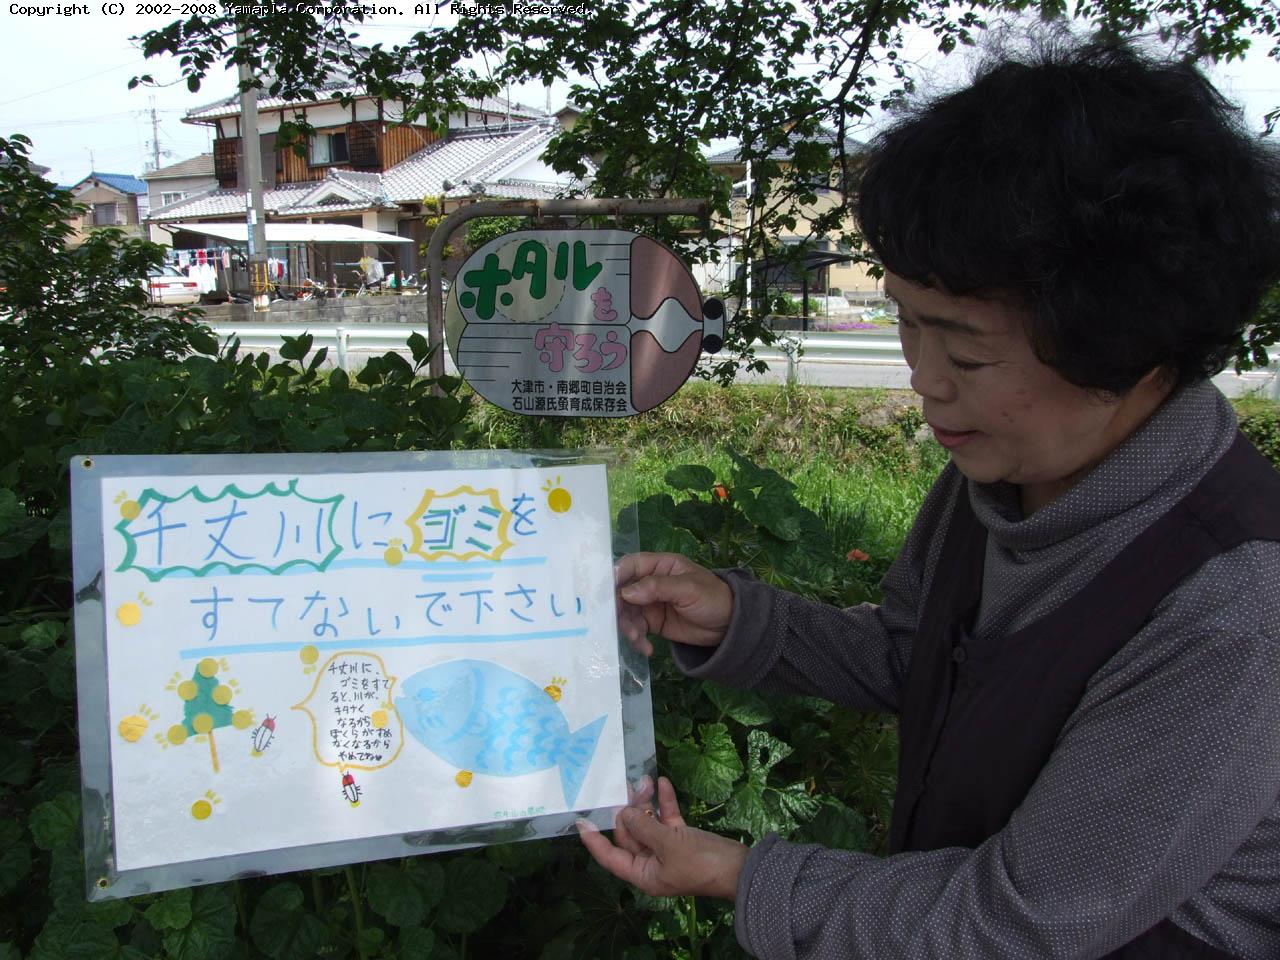 Copyright (C) 2002-2008 Yamapla Corporation. All Rights Reserved.
ホタル
を
守ろう
大津市・南郷町自治会
石山源氏螢育成保存会
千丈川に、ゴミを
すてないで下さい
千丈川に、
ゴミをすて
ると、川が、
キタナく
なるから
ぼくらがすめ
なくなるから
やめてね♥